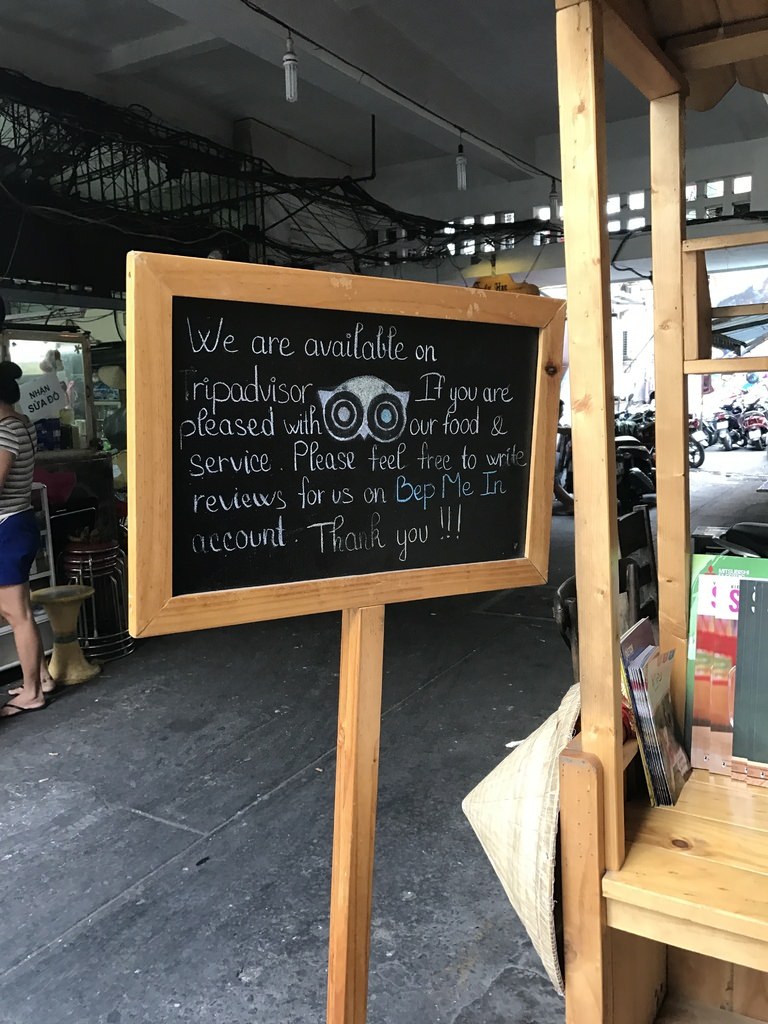 We are available on
Tripadvisor If you are
pleased with our food &
service. Please feel free to write
reviews for us on Bep Me In
account. Thank you !!!
NHẬN
SỬA ĐỒ
MITSUBISHI